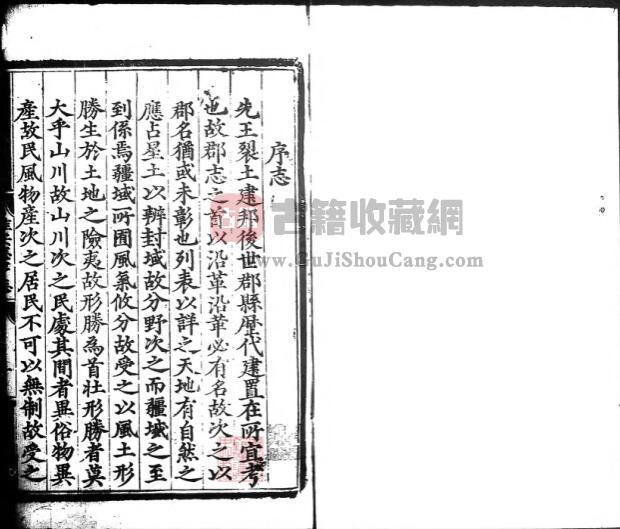 序志
先王裂土建邦後世郡縣歷代建置在所宜考
也故郡志之首以沿革沿革必有名故次之以
郡名猶或未彰也列表以詳之天地有自然之
應占星土以辨封域故分野次之而疆域之至
到係焉疆域所囿風氣攸分故受之以風土形
勝生於土地之險夷故形勝為首壯形勝者莫
大乎山川故山川次之民處其間者異俗物異
產故民風物產次之居民不可以無制故受之
古籍收藏網
www.GuJiShouCang.com